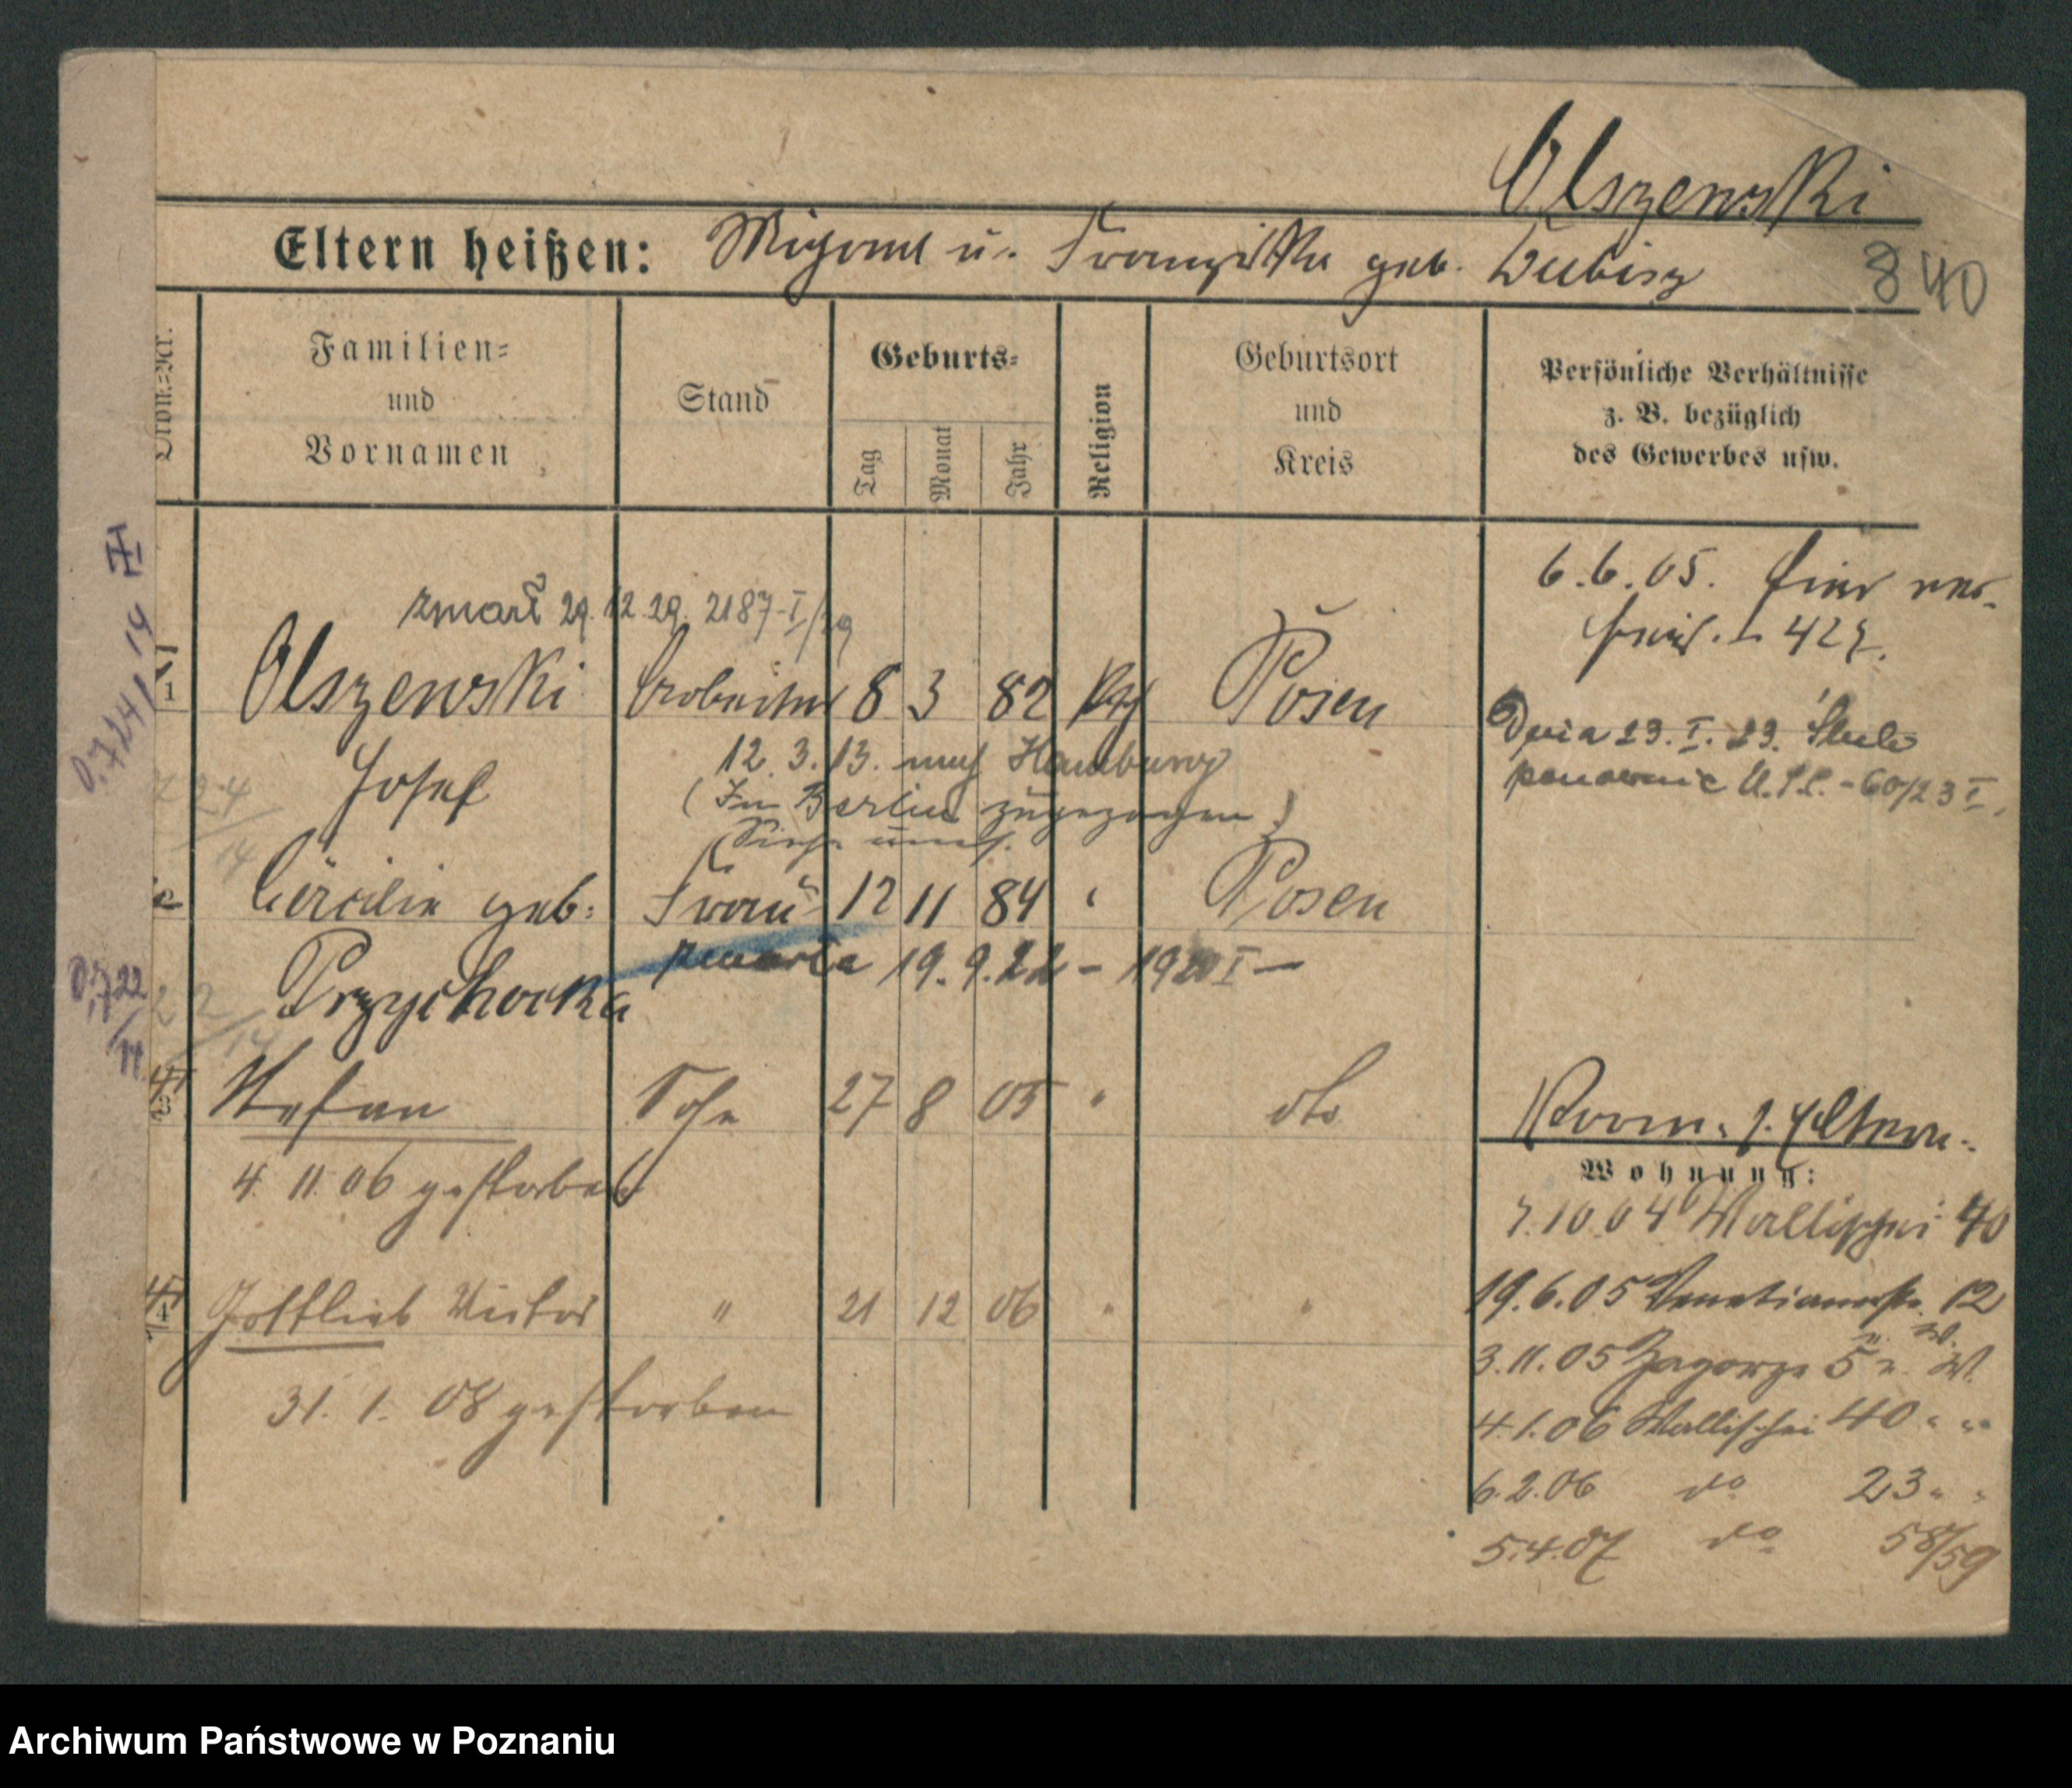 Olszewski
Eltern heißen: Michael u. Franziska geb. Dubisz
840
Familien=
und
Vornamen
Stand
Geburts=
Tag
Monat
Jahr
Religion
Geburtsort
und
Kreis
Persönliche Verhältnisse
z. B. bezüglich
des Gewerbes usw.
6.6.05. hier
427.
zmarł 29.12.29. 2187-I/29
1 Olszewski Arbeiter 8 3 82 kth Posen
Josef
12.3.13. nach Hamburg
(In Berlin zugezogen)
Dnia 23.I.23.
60/23 I.
2 Cäcilie geb. Frau 12 11 84 " Posen
Przychocka
zmarła 19.9.22 – 1920 I –
3 Stefan Sohn 27 8 05 " do
4. 11. 06 gestorben
Eltern
Wohnung:
7.10.04 Wallischei 40
19.6.05 Venetianerstr. 12
3.11.05 Zagorze 5
4.1.06 Wallischei 40 " "
6.2.06 do 23 " "
5.4.07 do 58/59
4 Gottlieb Victor " 21 12 06 " "
31. 1. 08 gestorben
Archiwum Państwowe w Poznaniu